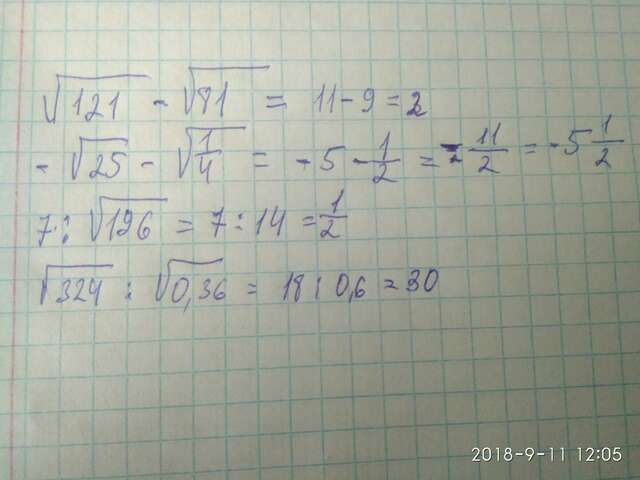 √121 - √81 = 11-9=2
- √25 - √1/4 = -5-1/2 = -11/2 = -5 1/2
7:√196 = 7:14=1/2
√324 : √0,36 = 18:0,6=30
2018-9-11 12:05